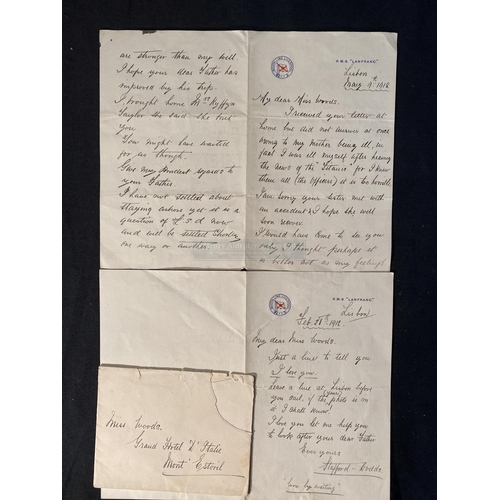 R.M.S. "LANFRANC"
Lisbon
May 9th 1912
My dear Miss Woods.
I received your letter at
home but did not answer at once
owing to my Mother being ill, in
fact I was ill myself after hearing
the news of the "Titanic" for I knew
them all (the Officers) it is too horrible
I am sorry your sister met with
an accident & I hope she will
soon recover.
I would have come to see you
only I thought perhaps it
is better not as my feelings
are stronger than my will.
I hope your dear Father has
improved by his trip.
I brought home Mrs
Taylor she said she
you
You might have waited
for us though.
Give my kindest regards to
your Father
I have not settled about
staying ashore yet it is a
question of £.s.d now
and will be settled shortly
one way or another
R.M.S. "LANFRANC"
Lisbon
Feb. 1912.
My dear Miss Woods.
Just a line to tell you
I love you.
Leave a line at Lisbon before
you sail, if the photo is in
it I shall know.
I love you let me help you
to look after your dear Father
Ever yours
Stafford-
Miss Woods.
Grand Hotel D'Italie
Mont Estoril